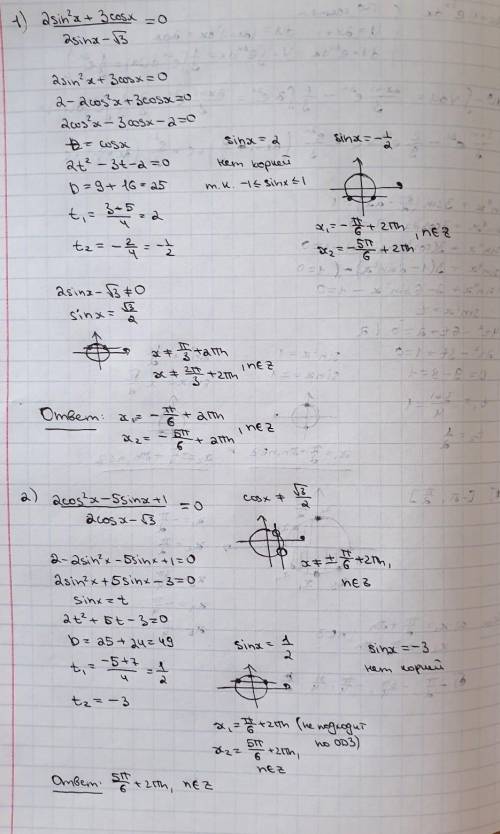 1) (2sin²x + 3cosx)/(2sinx - √3) = 0
2sin²x + 3cosx = 0
2 - 2cos²x + 3cosx = 0
2cos²x - 3cosx - 2 = 0
t = cosx
2t² - 3t - 2 = 0
D = 9 + 16 = 25
t₁ = (3+5)/4 = 2
t₂ = -2/4 = -1/2
sinx = 2
нет корней
т.к. -1 ≤ sinx ≤ 1
sinx = -1/2
x₁ = -π/6 + 2πn
x₂ = -5π/6 + 2πn, n∈Z
2sinx - √3 ≠ 0
sinx = √3/2
x ≠ π/3 + 2πn
x ≠ 2π/3 + 2πn, n∈Z
Ответ: x₁ = -π/6 + 2πn
x₂ = -5π/6 + 2πn, n∈Z
2) (2cos²x - 5sinx + 1)/(2cosx - √3) = 0
cosx ≠ √3/2
x ≠ ± π/6 + 2πn,
n∈Z
2 - 2sin²x - 5sinx + 1 = 0
2sin²x + 5sinx - 3 = 0
sinx = t
2t² + 5t - 3 = 0
D = 25 + 24 = 49
t₁ = (-5+7)/4 = 1/2
t₂ = -3
sinx = 1/2
sinx = -3
нет корней
x₁ = π/6 + 2πn (не подходит
по ОДЗ)
x₂ = 5π/6 + 2πn,
n∈Z
Ответ: 5π/6 + 2πn, n∈Z